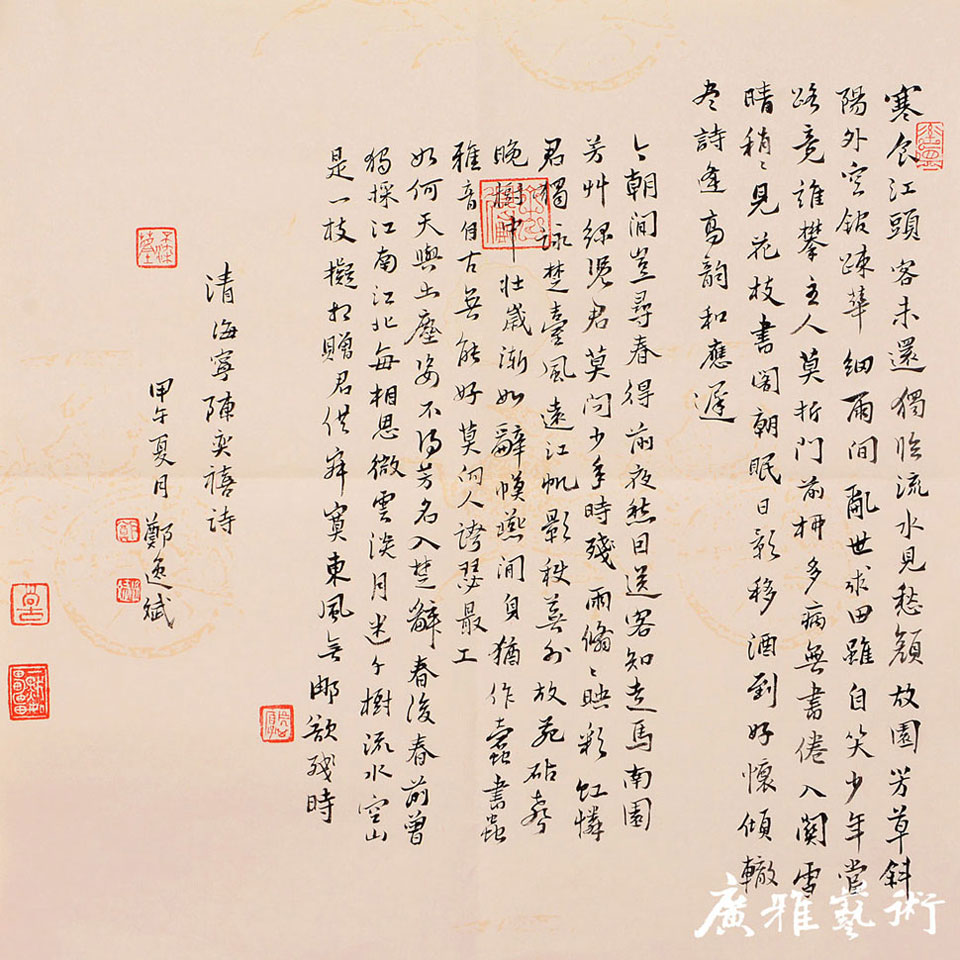 寒食江頭客未還獨臨流水見愁顏故園芳草斜
陽外空館疎華細雨間亂世求田雖自笑少年當
路竟誰攀主人莫折門前柳多病無書倦入關雪
晴稍〻見花枝書閣朝眠日影移酒到好懷傾轍
尽詩逢高韵和應遲
今朝澗豈尋春得前夜愁因送客知走馬南園
芳艸綠憑君莫問少年時殘雨翛〻映彩虹憐
君獨詠楚臺風遠江帆影秋暮外故苑砧聲
晚樹中壯歲漸如辭幙燕閒身猶作蠹書蟲
雅音自古無能好莫向人誇瑟最工
如何天與出塵姿不得芳名入楚辭春後春前曾
獨採江南江北每相思微雲淡月迷千樹流水空山
是一枝擬相贈君供寂寞東風無那欲殘時
清海寧陳奕禧詩
甲午夏月 鄭逸斌
廣雅藝術